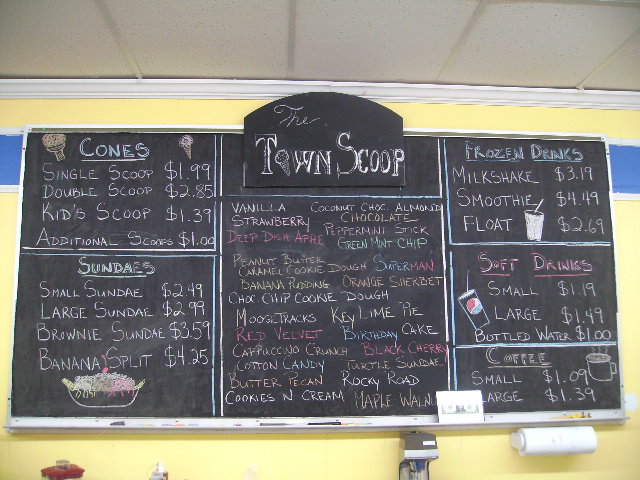 The
Town Scoop
Cones
Single Scoop $1.99
Double Scoop $2.85
Kid's Scoop $1.39
Additional Scoops $1.00
Sundaes
Small Sundae $2.49
Large Sundae $2.99
Brownie Sundae $3.59
Banana Split $4.25
Vanilla Coconut Choc. Almond
Strawberry Chocolate
Peppermint Stick
Deep Dish Apple Green Mint Chip
Peanut Butter
Caramel Cookie Dough Superman
Banana Pudding Orange Sherbet
Choc Chip Cookie Dough
Moosetracks Key Lime Pie
Red Velvet Birthday Cake
Cappuccino Crunch Black Cherry
Cotton Candy Turtle Sundae
Butter Pecan Rocky Road
Cookies N Cream Maple
Frozen Drinks
Milkshake $3.19
Smoothie $4.49
Float $2.69
Soft Drinks
Small $1.19
Large $1.49
Bottled Water $1.00
Coffee
Small $1.09
Large $1.39